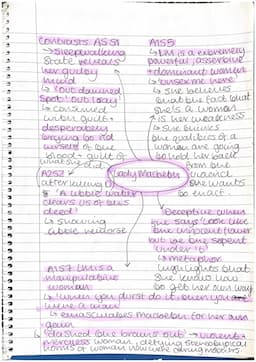 Contrasts: A5S1
→ Sleepwalking
state reveals
her guilty
mind
↳ 'Out damned
spot! Out I say'
↳ consumed
with guilt +
desperately
trying to rid
herself of the
blood + guilt of
what she did
A2S2
after killing
↳ 'A little water
clears us of this
deed'
↳ showing
little remorse
A1S5
↳ LM is a extremely
powerful, assertive
+ dominant woman
↳ 'unsex me here'
↳ she believes
that the fact that
she's a woman
is her weakness
→ she thinks
the qualities of a
woman are going
to hold her back
from the
she wants
to enact.
Lady Macbeth
Deceptive when
she says 'look like
the innocent flower
but be the serpent
under 't'
↳ metaphor
highlights that
she
to get her own
way
A1S7 LM is a
manipulative
woman
↳ 'when you durst do it, then you
were a man'
↳ emasculates Macbeth for her own
gain
'dashed the brains out' → violent +
merciless woman, defying stereotypical
norms of women who were caring mothers.